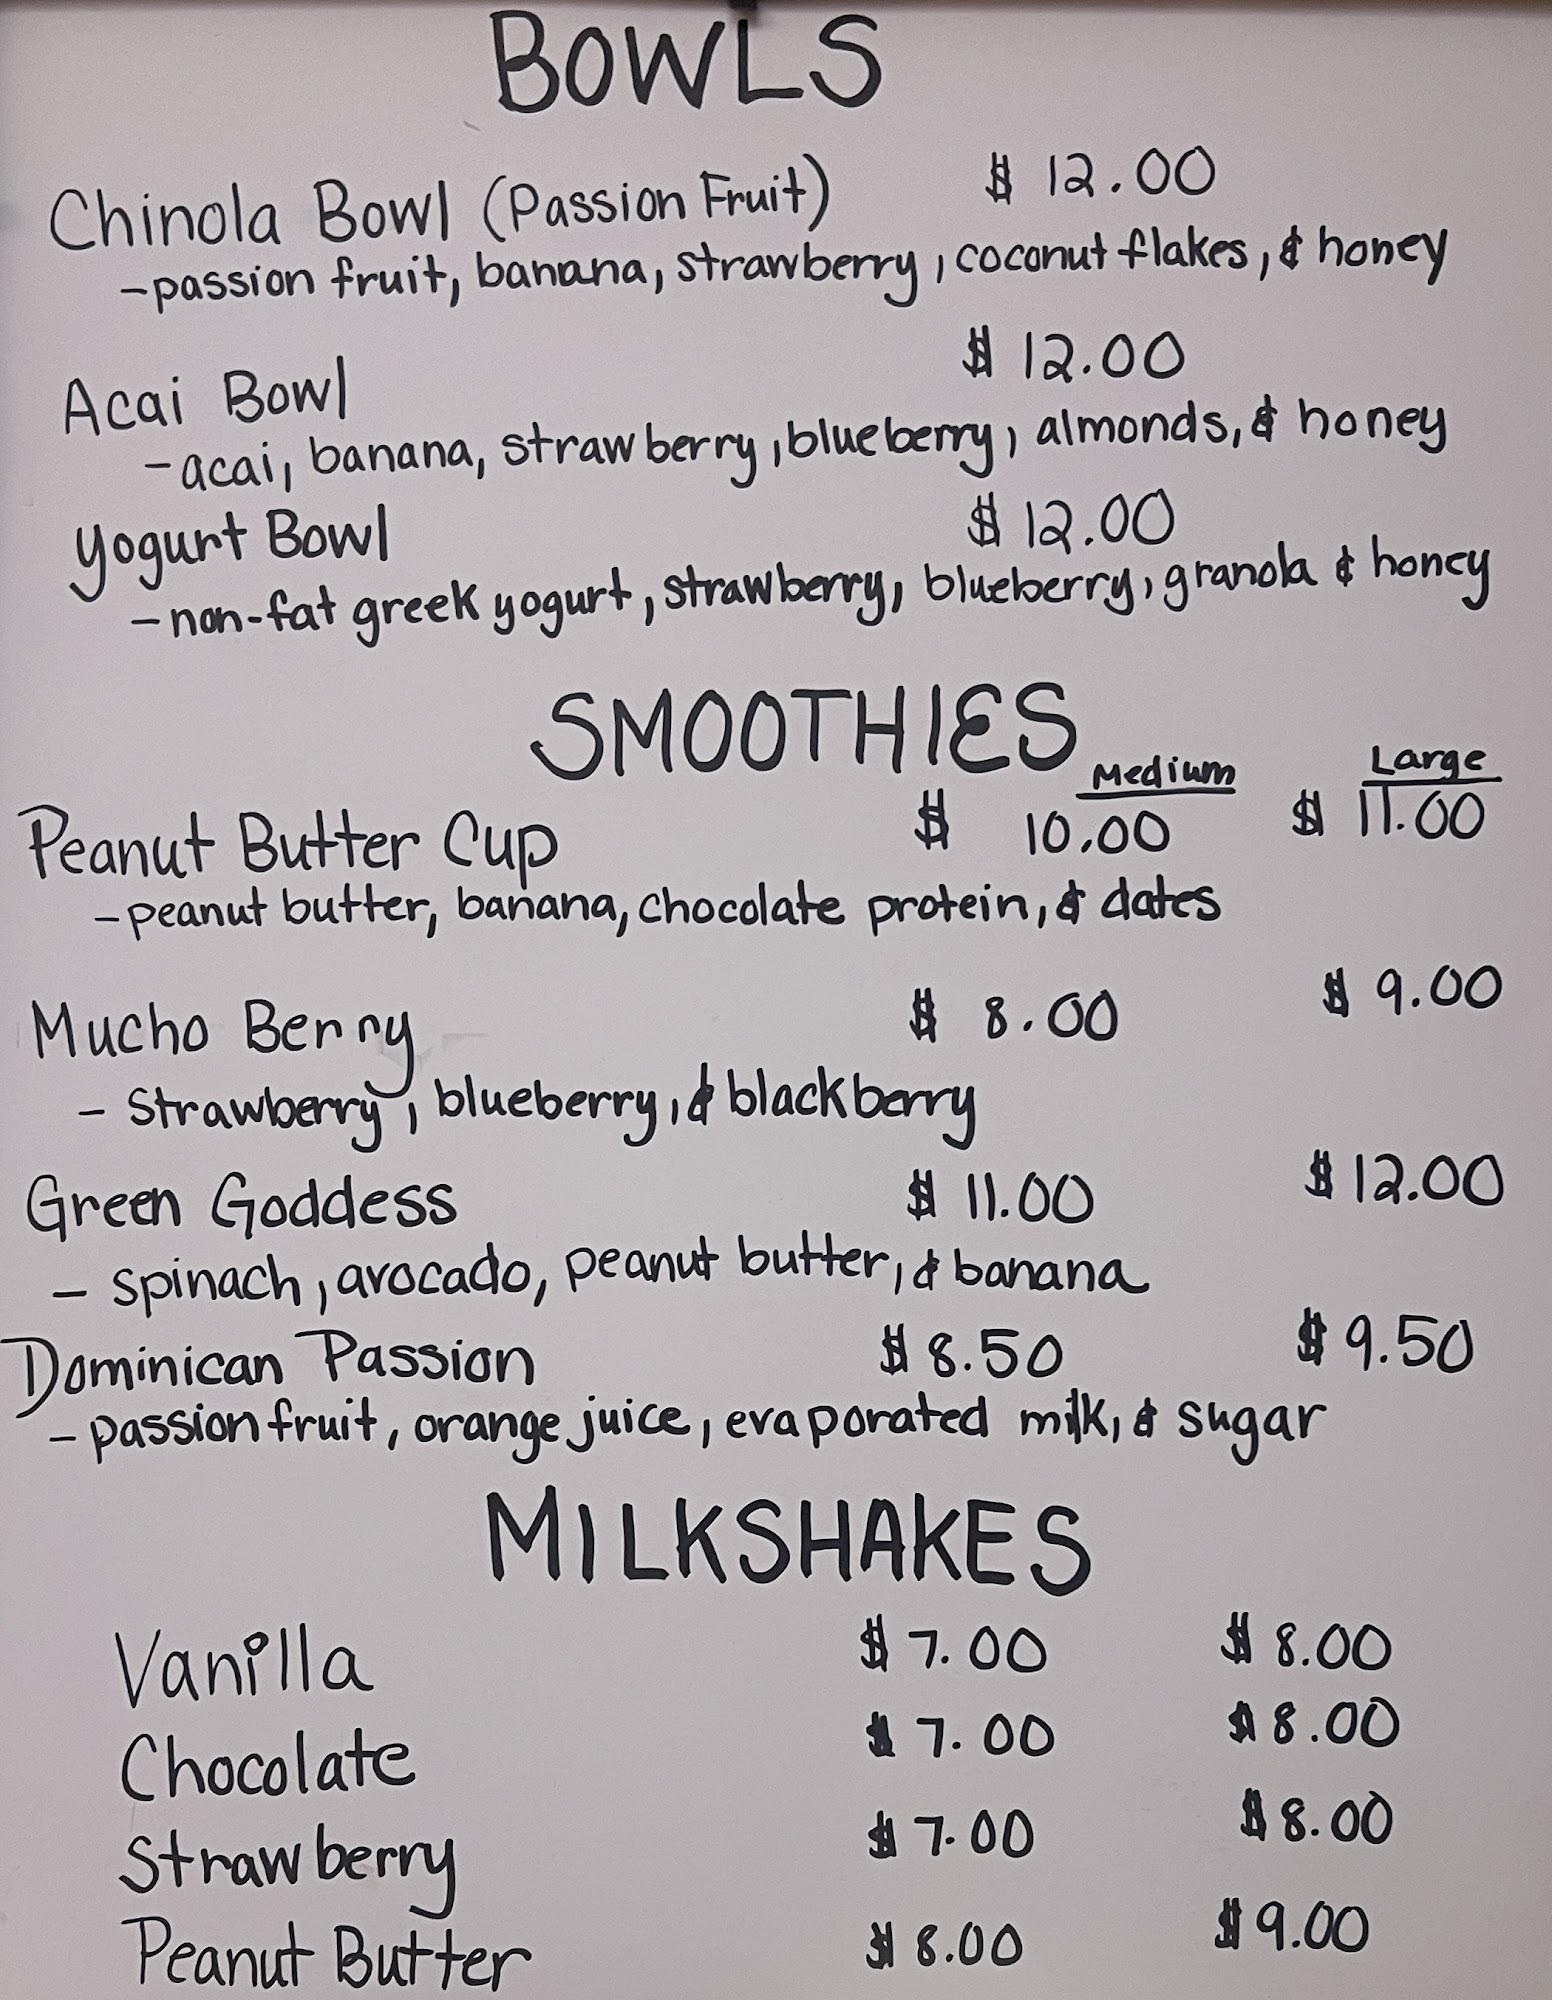 BOWLS
Chinola Bowl (Passion Fruit) $ 12.00
-passion fruit, banana, strawberry, coconut flakes, & honey
Acai Bowl $ 12.00
-acai, banana, strawberry, blueberry, almonds, & honey
Yogurt Bowl $ 12.00
-non-fat greek yogurt, strawberry, blueberry, granola & honey
SMOOTHIES
Medium Large
Peanut Butter Cup $ 10.00 $ 11.00
-peanut butter, banana, chocolate protein, & dates
Mucho Berry $ 8.00 $ 9.00
- strawberry, blueberry, & blackberry
Green Goddess $ 11.00 $ 12.00
- spinach, avocado, peanut butter, & banana
Dominican Passion $ 8.50 $ 9.50
- passion fruit, orange juice, evaporated milk, & sugar
MILKSHAKES
Vanilla $ 7.00 $ 8.00
Chocolate $ 7.00 $ 8.00
Strawberry $ 7.00 $ 8.00
Peanut Butter $ 8.00 $ 9.00